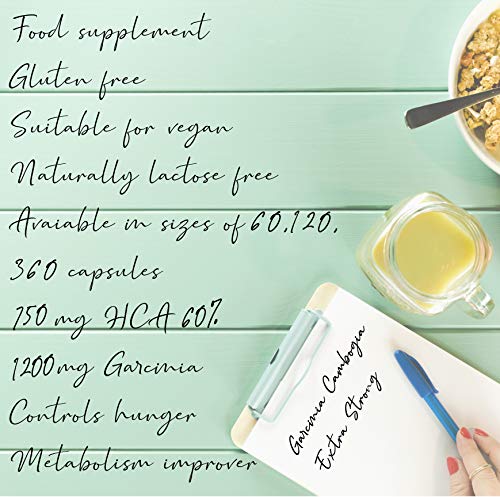 Food supplement
Gluten free
Suitable for vegan
Naturally lactose free
Avaiable in sizes of 60,120,
360 capsules
750 mg HCA 60%
1200mg Garcinia
Controls hunger
Metabolism improver
Garcinia Cambogia
Extra Strong